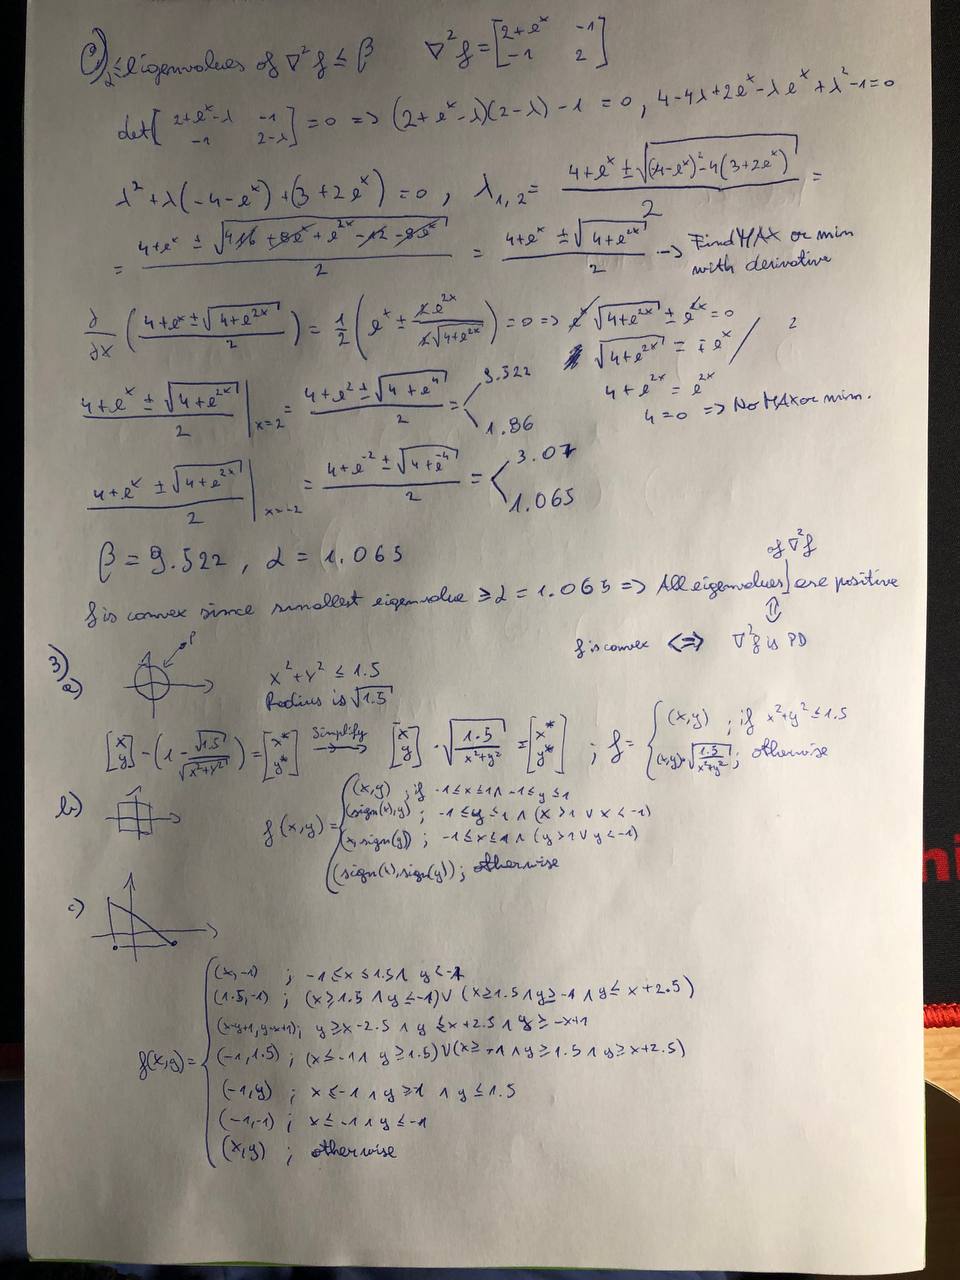 c) α ≤ eigenvalues of ∇²f ≤ β ∇²f = [2+eˣ -1; -1 2]
det[2+eˣ-λ -1; -1 2-λ] = 0 => (2+eˣ-λ)(2-λ) - 1 = 0, 4-4λ+2eˣ-λeˣ+λ²-1=0
λ²+λ(-4-eˣ)+(3+2eˣ)=0, λ₁,₂ = (4+eˣ ± √((-4-eˣ)²-4(3+2eˣ)))/2 =
= (4+eˣ ± √(416+8eˣ+e²ˣ-12-8eˣ))/2 = (4+eˣ ± √(4+e²ˣ))/2 --> Find MAX or min
with derivative
∂/∂x ((4+eˣ±√(4+e²ˣ))/2) = 1/2 (eˣ ± 2e²ˣ/(2√(4+e²ˣ))) = 0 => eˣ√(4+e²ˣ) ± e²ˣ = 0
√(4+e²ˣ) = ∓eˣ / ²
4+e²ˣ = e²ˣ
4=0 => No MAX or min.
(4+eˣ ± √(4+e²ˣ))/2 |x=2 = (4+e² ± √(4+e⁴))/2 = < 9.522
1.86
(4+eˣ ± √(4+e²ˣ))/2 |x=-2 = (4+e⁻² ± √(4+e⁻⁴))/2 = < 3.07
1.065
β = 9.522, α = 1.065
of ∇²f
f is convex since smallest eigenvalue ≥ α = 1.065 => All eigenvalues] are positive
⇕
f is convex <=> ∇²f is PD
3)
a) P x²+y² ≤ 1.5
Radius is √1.5
[x; y] - (1 - √1.5/√(x²+y²)) = [x*; y*] Simplify → [x; y] · √(1.5/(x²+y²)) = [x*; y*] ; f = { (x,y) ; if x²+y² ≤ 1.5
(x,y)·√(1.5/(x²+y²)) ; otherwise
b) f(x,y) = { (x,y) ; if -1≤x≤1 ∧ -1≤y≤1
(sign(x),y) ; -1≤y≤1 ∧ (x>1 ∨ x<-1)
(x,sign(y)) ; -1≤x≤1 ∧ (y>1 ∨ y<-1)
(sign(x),sign(y)) ; otherwise
c)
f(x,y) = { (x,-1) ; -1≤x≤1.5 ∧ y<-1
(1.5,-1) ; (x≥1.5 ∧ y≤-1) ∨ (x≥1.5 ∧ y≥-1 ∧ y≤x+2.5)
(x-y+1, y-x+1) ; y≥x-2.5 ∧ y≤x+2.5 ∧ y≥-x+1
(-1,1.5) ; (x≤-1 ∧ y≥1.5) ∨ (x≥-1 ∧ y≥1.5 ∧ y≥x+2.5)
(-1,y) ; x≤-1 ∧ y≥1 ∧ y≤1.5
(-1,-1) ; x≤-1 ∧ y≤-1
(x,y) ; otherwise